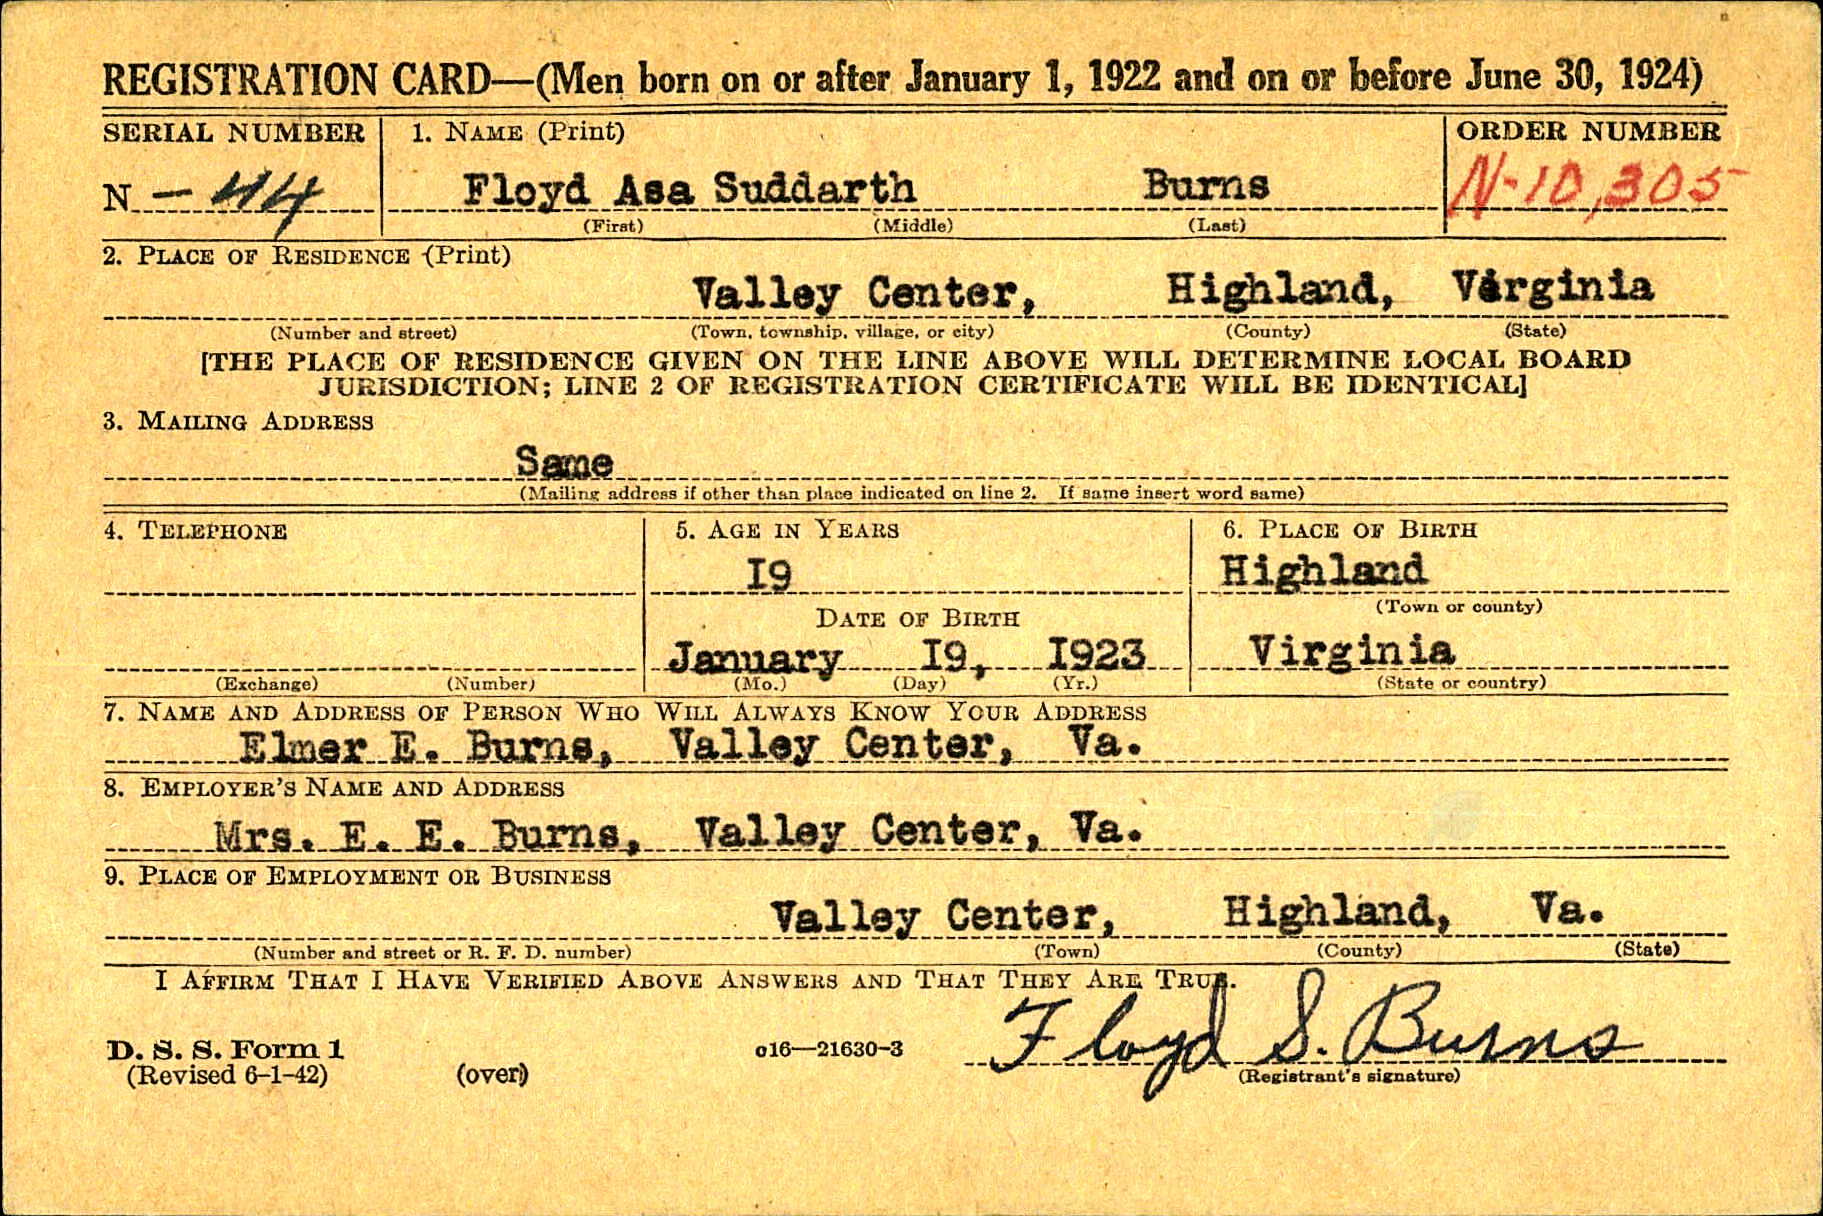 REGISTRATION CARD—(Men born on or after January 1, 1922 and on or before June 30, 1924)
SERIAL NUMBER 1. NAME (Print) ORDER NUMBER
N - 44 Floyd Asa Suddarth Burns N-10,305
(First) (Middle) (Last)
2. PLACE OF RESIDENCE (Print)
Valley Center, Highland, Virginia
(Number and street) (Town, township, village, or city) (County) (State)
[THE PLACE OF RESIDENCE GIVEN ON THE LINE ABOVE WILL DETERMINE LOCAL BOARD
JURISDICTION; LINE 2 OF REGISTRATION CERTIFICATE WILL BE IDENTICAL]
3. MAILING ADDRESS
Same
(Mailing address if other than place indicated on line 2. If same insert word same)
4. TELEPHONE 5. AGE IN YEARS 6. PLACE OF BIRTH
I9 Highland
(Town or county)
DATE OF BIRTH
January I9, I923 Virginia
(Exchange) (Number) (Mo.) (Day) (Yr.) (State or country)
7. NAME AND ADDRESS OF PERSON WHO WILL ALWAYS KNOW YOUR ADDRESS
Elmer E. Burns, Valley Center, Va.
8. EMPLOYER'S NAME AND ADDRESS
Mrs. E. E. Burns, Valley Center, Va.
9. PLACE OF EMPLOYMENT OR BUSINESS
Valley Center, Highland, Va.
(Number and street or R. F. D. number) (Town) (County) (State)
I AFFIRM THAT I HAVE VERIFIED ABOVE ANSWERS AND THAT THEY ARE TRUE.
Floyd S. Burns
D. S. S. Form 1
(Revised 6-1-42) (over) c16—21630-3
(Registrant's signature)